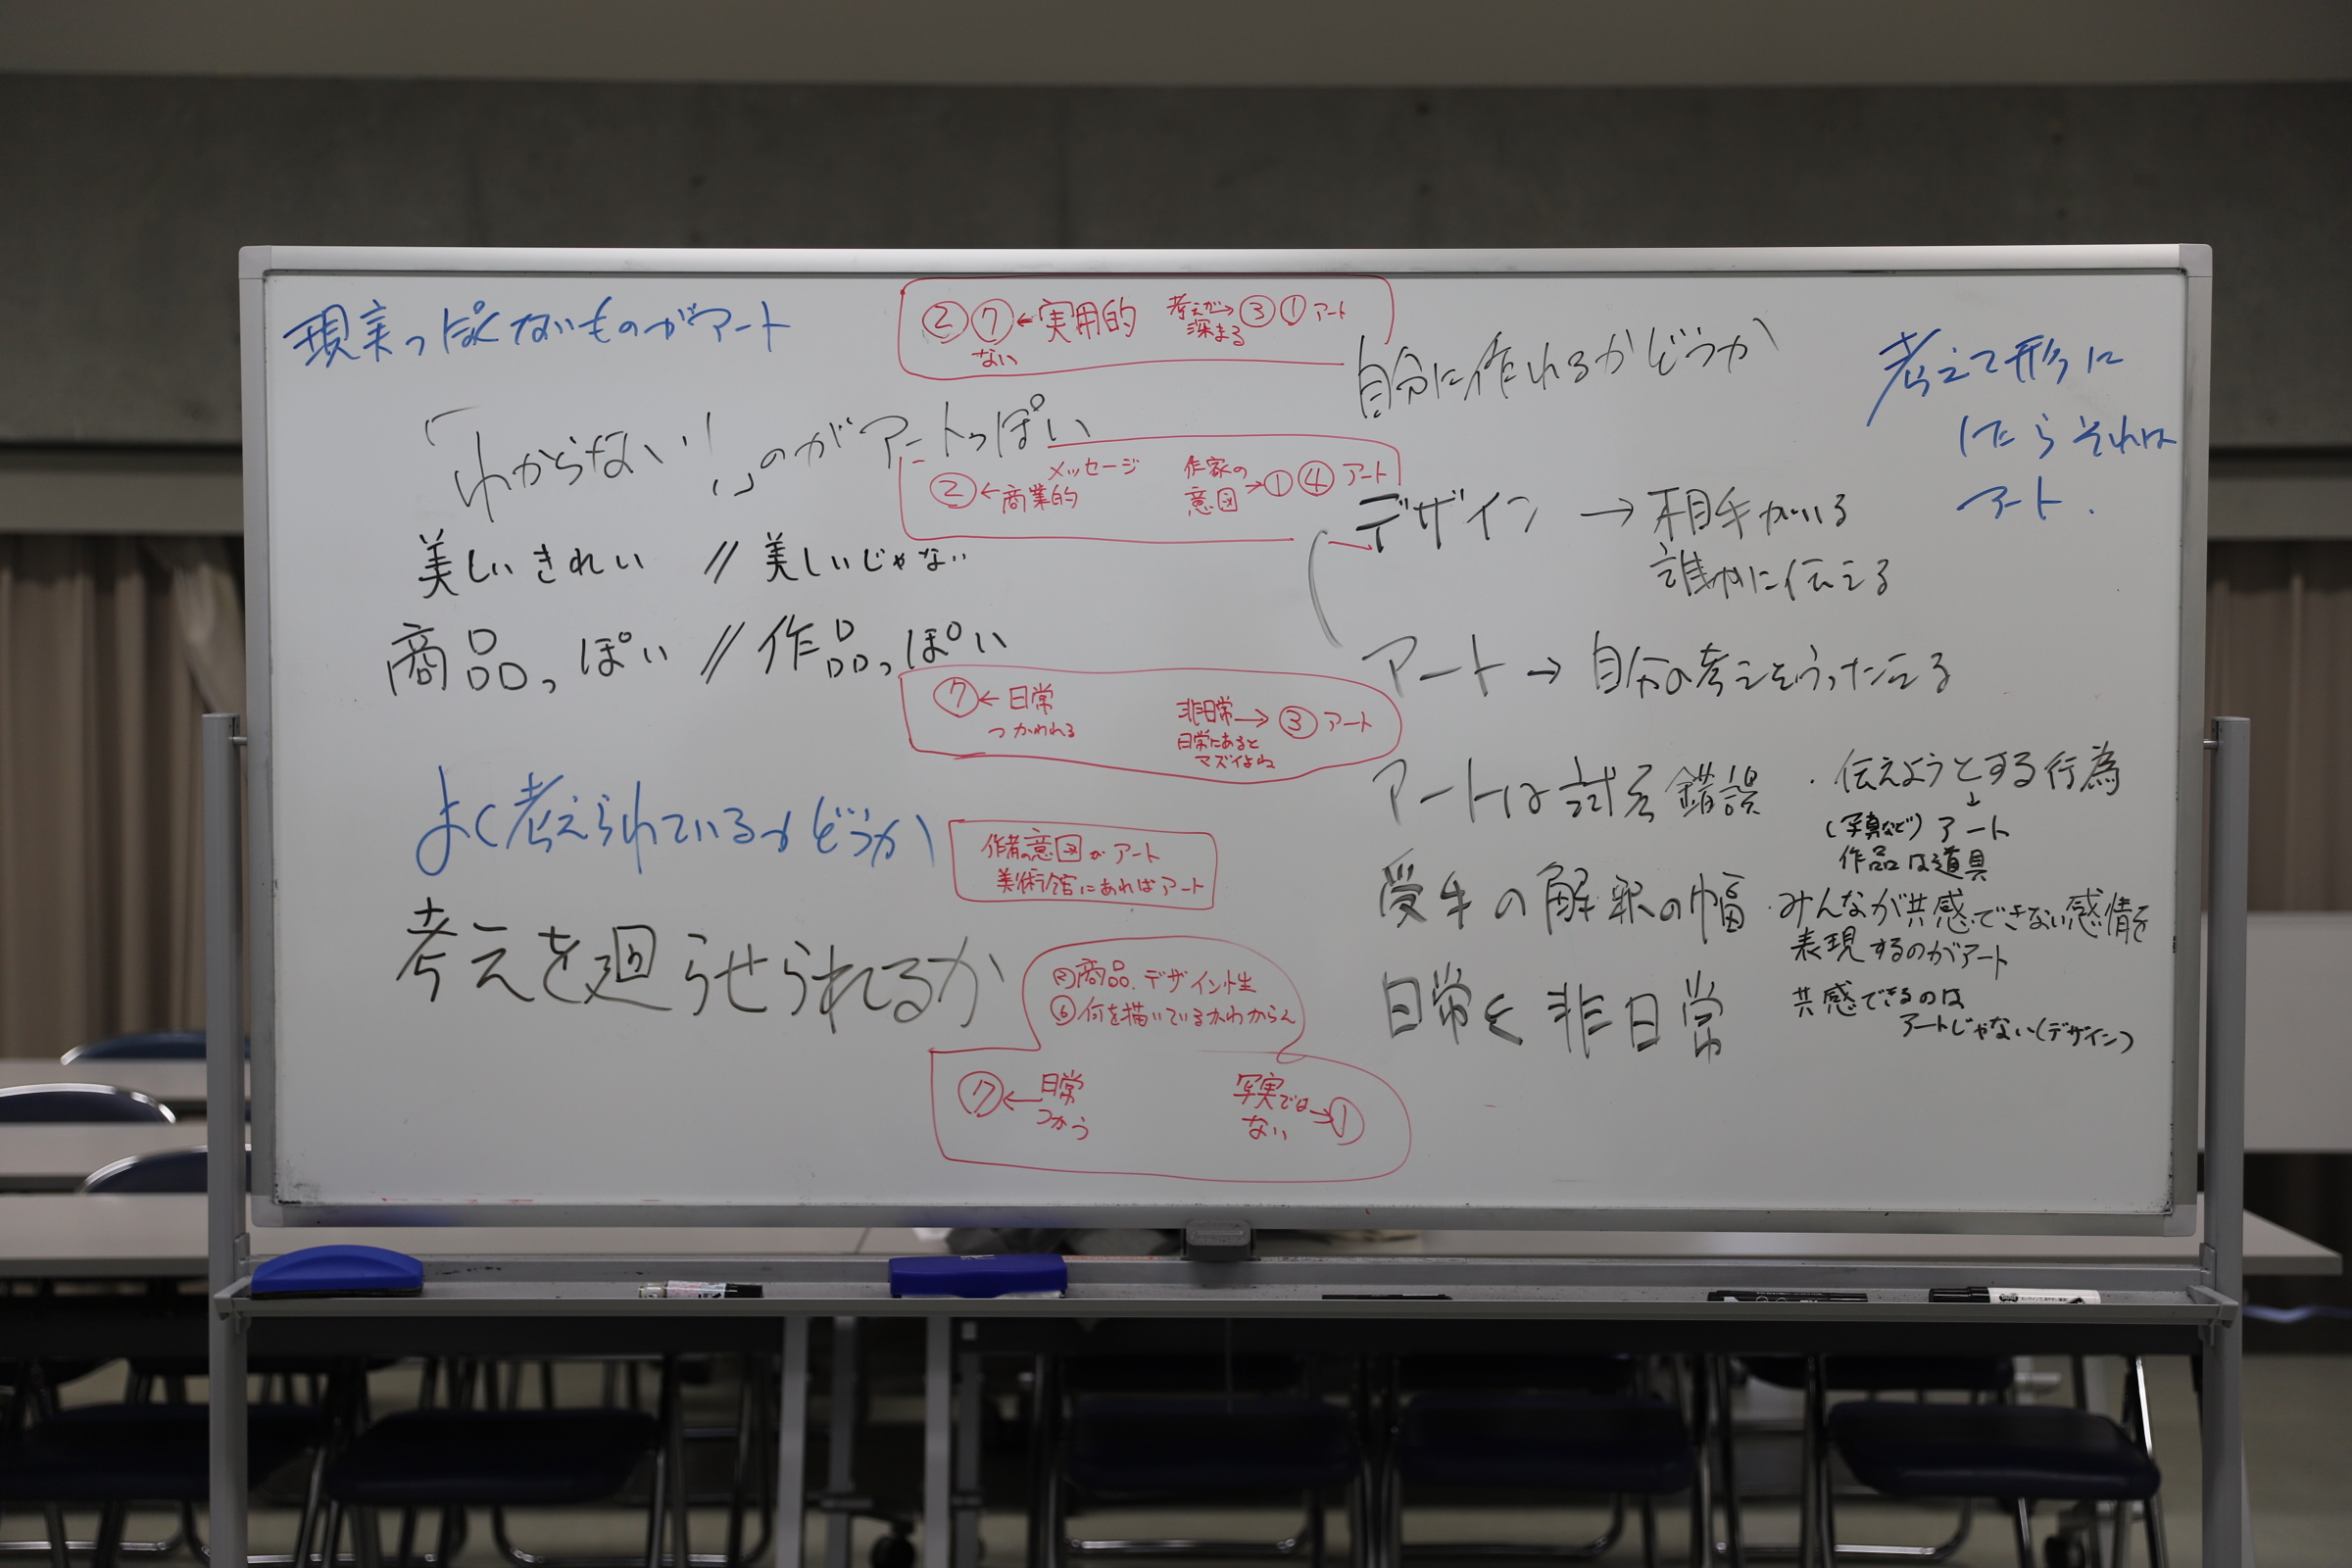 現実っぽくないものがアート
「わからない!」のがアートっぽい
美しいきれい // 美しいじゃない
商品っぽい // 作品っぽい
よく考えられているかどうか
考えを廻らせられるか
②⑦←実用的
ない
考えが→③①アート
深まる
メッセージ
②←商業的
作家の
意図→①④アート
⑦←日常
つかわれる
非日常→③アート
日常にあると
マズイよね
作者の意図がアート
美術館にあればアート
②商品、デザイン性
⑥何を描いているかわからん
⑦←日常
つかう
写実では
ない→①
自分に作れるかどうか
デザイン→相手がいる
誰かに伝える
アート→自分の考えをうったえる
アートは試行錯誤
受手の解釈の幅
日常と非日常
考えて形に
したらそれは
アート.
・伝えようとする行為
↓
(写真など)アート
作品は道具
・みんなが共感できない感情を
表現するのがアート
共感できるのは
アートじゃない(デザイン)